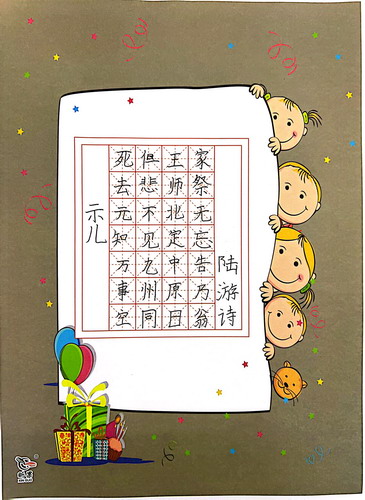 示儿
死去元知万事空
但悲不见九州同
王师北定中原日
家祭无忘告乃翁
陆游诗